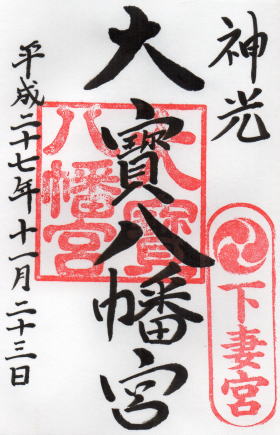 神光
下妻宮
大寶八幡宮
大寶八幡宮
平成二十七年十一月二十三日